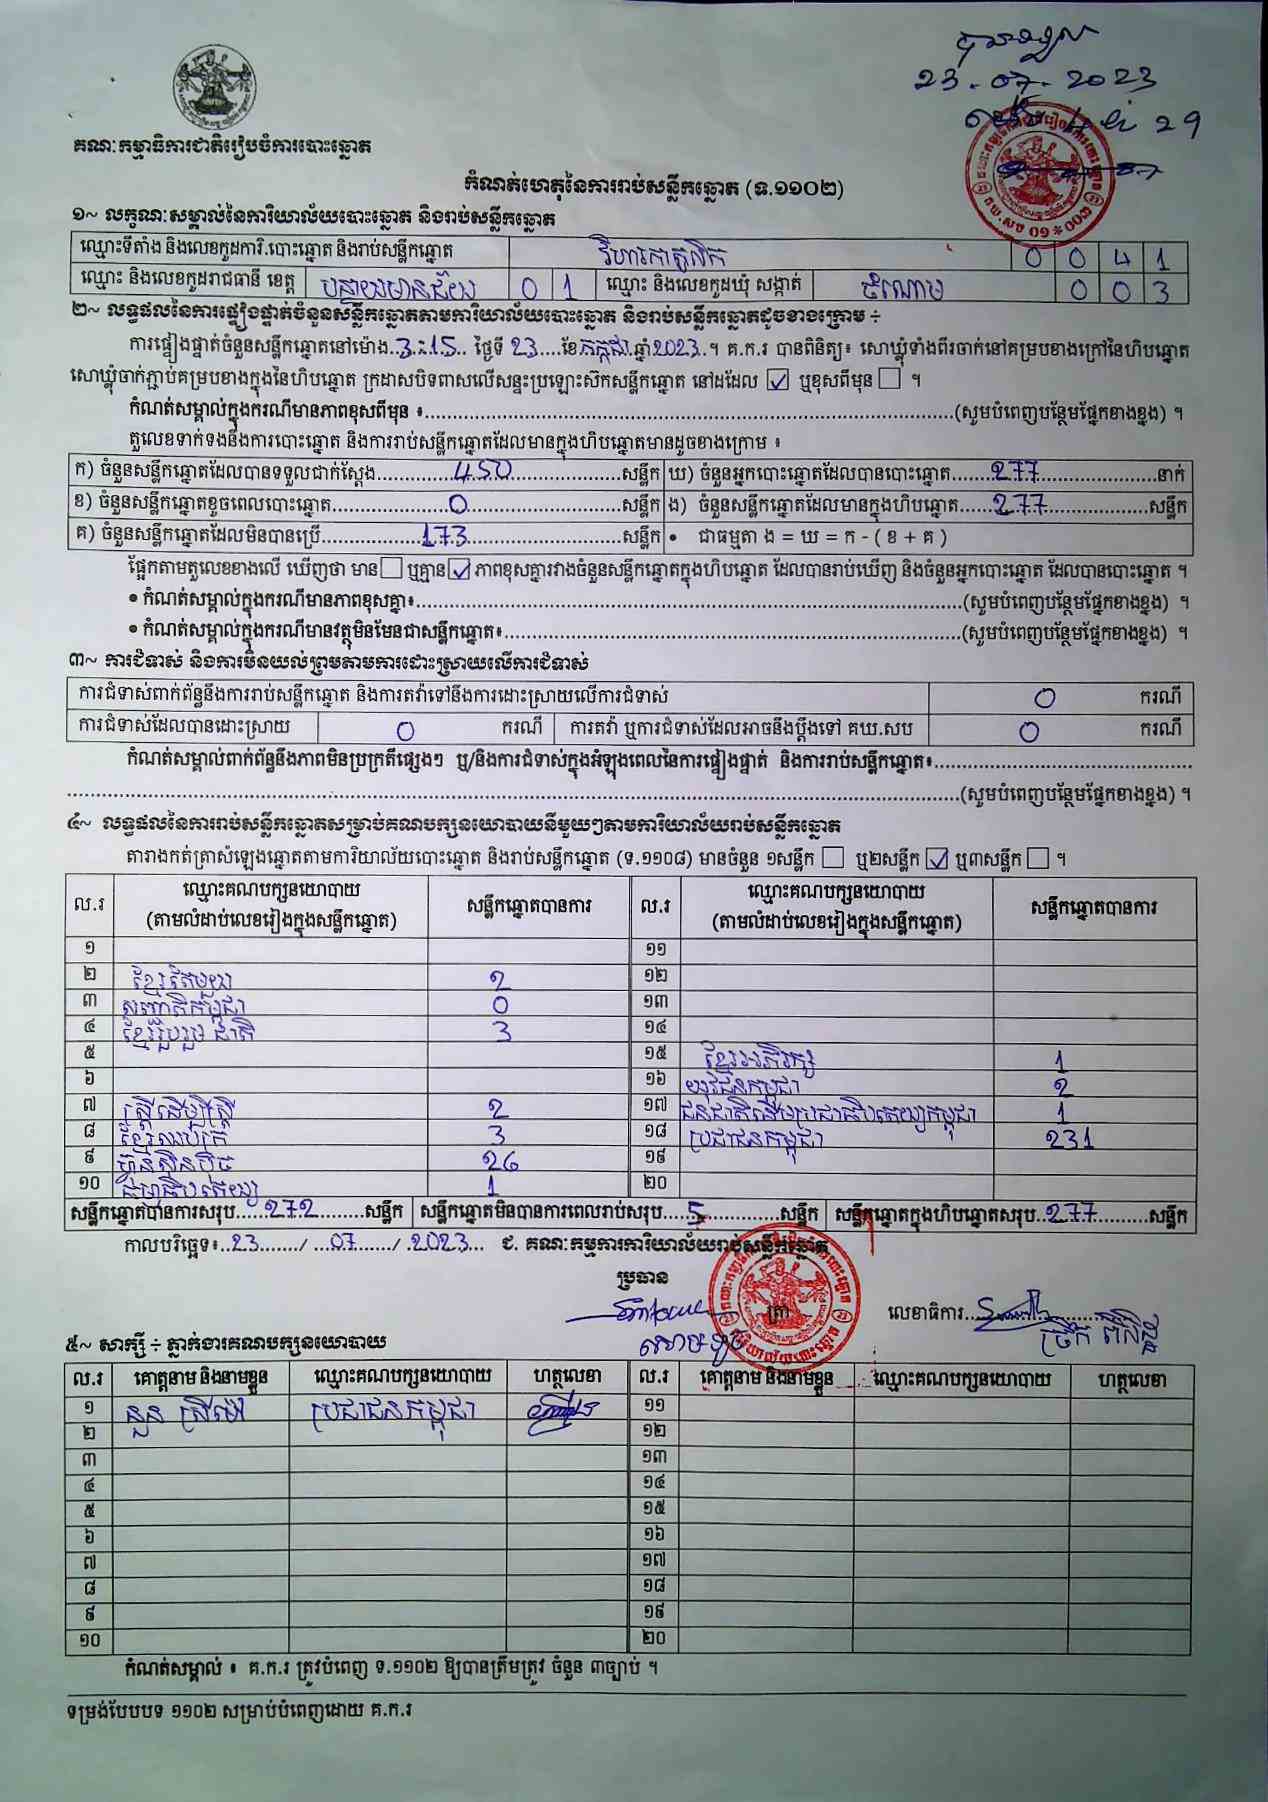 23-07-2023
គណៈកម្មាធិការជាតិរៀបចំការបោះឆ្នោត
កំណត់ហេតុនៃការរាប់សន្លឹកឆ្នោត (ទ.១១០២)
១~ លក្ខណៈសម្គាល់នៃការិយាល័យបោះឆ្នោត និងរាប់សន្លឹកឆ្នោត
ឈ្មោះទីតាំង និងលេខកូដការិ.បោះឆ្នោត និងរាប់សន្លឹកឆ្នោត វិហារកាតូលិក 0 0 4 1
ឈ្មោះ និងលេខកូដរាជធានី ខេត្ត បន្ទាយមានជ័យ 0 1 ឈ្មោះ និងលេខកូដឃុំ សង្កាត់ ចំណោម 0 0 3
២~ លទ្ធផលនៃការផ្ទៀងផ្ទាត់ចំនួនសន្លឹកឆ្នោតតាមការិយាល័យបោះឆ្នោត និងរាប់សន្លឹកឆ្នោតដូចខាងក្រោម ÷
ការផ្ទៀងផ្ទាត់ចំនួនសន្លឹកឆ្នោតនៅម៉ោង..3:15.. ថ្ងៃទី 23....ខែកក្កដា.ឆ្នាំ2023..។ គ.ក.រ បានពិនិត្យ៖ សោឃ្លុំទាំងពីរចាក់នៅគម្របខាងក្រៅនៃហិបឆ្នោត
សោឃ្លុំចាក់ភ្ជាប់គម្របខាងក្នុងនៃហិបឆ្នោត ក្រដាសបិទពាសលើសន្ទះប្រឡោះស៊កសន្លឹកឆ្នោត នៅដដែល ☑ ឬខុសពីមុន ☐ ។
កំណត់សម្គាល់ក្នុងករណីមានភាពខុសពីមុន ៖..........(សូមបំពេញបន្ថែមផ្នែកខាងខ្នង) ។
តួលេខទាក់ទងនឹងការបោះឆ្នោត និងការរាប់សន្លឹកឆ្នោតដែលមានក្នុងហិបឆ្នោតមានដូចខាងក្រោម ៖
ក) ចំនួនសន្លឹកឆ្នោតដែលបានទទួលជាក់ស្តែង.....450.....សន្លឹក ឃ) ចំនួនអ្នកបោះឆ្នោតដែលបានបោះឆ្នោត.....277.....នាក់
ខ) ចំនួនសន្លឹកឆ្នោតខូចពេលបោះឆ្នោត.....0.....សន្លឹក ង) ចំនួនសន្លឹកឆ្នោតដែលមានក្នុងហិបឆ្នោត.....277.....សន្លឹក
គ) ចំនួនសន្លឹកឆ្នោតដែលមិនបានប្រើ.....173.....សន្លឹក • ជាធម្មតា ង = ឃ = ក - ( ខ + គ )
ផ្អែកតាមតួលេខខាងលើ ឃើញថា មាន ☐ ឬគ្មាន ☑ ភាពខុសគ្នារវាងចំនួនសន្លឹកឆ្នោតក្នុងហិបឆ្នោត ដែលបានរាប់ឃើញ និងចំនួនអ្នកបោះឆ្នោត ដែលបានបោះឆ្នោត ។
• កំណត់សម្គាល់ក្នុងករណីមានភាពខុសគ្នា៖..........(សូមបំពេញបន្ថែមផ្នែកខាងខ្នង) ។
• កំណត់សម្គាល់ក្នុងករណីមានវត្ថុមិនមែនជាសន្លឹកឆ្នោត៖..........(សូមបំពេញបន្ថែមផ្នែកខាងខ្នង) ។
៣~ ការជំទាស់ និងការមិនយល់ព្រមតាមការដោះស្រាយលើការជំទាស់
ការជំទាស់ពាក់ព័ន្ធនឹងការរាប់សន្លឹកឆ្នោត និងការតវ៉ាទៅនឹងការដោះស្រាយលើការជំទាស់ 0 ករណី
ការជំទាស់ដែលបានដោះស្រាយ 0 ករណី ការតវ៉ា ឬការជំទាស់ដែលអាចនឹងប្តឹងទៅ គឃ.សប 0 ករណី
កំណត់សម្គាល់ពាក់ព័ន្ធនឹងភាពមិនប្រក្រតីផ្សេងៗ ឬ/និងការជំទាស់ក្នុងអំឡុងពេលនៃការផ្ទៀងផ្ទាត់ និងការរាប់សន្លឹកឆ្នោត៖..........
..........(សូមបំពេញបន្ថែមផ្នែកខាងខ្នង) ។
៤~ លទ្ធផលនៃការរាប់សន្លឹកឆ្នោតសម្រាប់គណបក្សនយោបាយនីមួយៗតាមការិយាល័យរាប់សន្លឹកឆ្នោត
តារាងកត់ត្រាសំឡេងឆ្នោតតាមការិយាល័យបោះឆ្នោត និងរាប់សន្លឹកឆ្នោត (ទ.១១០៨) មានចំនួន ១សន្លឹក ☐ ឬ២សន្លឹក ☑ ឬ៣សន្លឹក ☐ ។
ល.រ ឈ្មោះគណបក្សនយោបាយ (តាមលំដាប់លេខរៀងក្នុងសន្លឹកឆ្នោត) សន្លឹកឆ្នោតបានការ ល.រ ឈ្មោះគណបក្សនយោបាយ (តាមលំដាប់លេខរៀងក្នុងសន្លឹកឆ្នោត) សន្លឹកឆ្នោតបានការ
១ ១១
២ ខ្មែរតែមួយ 2 ១២
៣ សញ្ជាតិកម្ពុជា 0 ១៣
៤ ខ្មែររួបរួមជាតិ 3 ១៤
៥ ១៥ ខ្មែរអភិរក្ស 1
៦ ១៦ យុវជនកម្ពុជា 2
៧ ស្ត្រីដើម្បីស្ត្រី 2 ១៧ ជនជាតិដើមប្រជាធិបតេយ្យកម្ពុជា 1
៨ ខ្មែរឈប់ក្រ 3 ១៨ ប្រជាជនកម្ពុជា 231
៩ ហ៊្វុនស៊ិនប៉ិច 26 ១៩
១០ ធម្មាធិបតេយ្យ 1 ២០
សន្លឹកឆ្នោតបានការសរុប.....272.....សន្លឹក សន្លឹកឆ្នោតមិនបានការពេលរាប់សរុប.....5.....សន្លឹក សន្លឹកឆ្នោតក្នុងហិបឆ្នោតសរុប..277.....សន្លឹក
កាលបរិច្ឆេទ៖..23....../....07....../..2023... ជ. គណៈកម្មការការិយាល័យរាប់សន្លឹកឆ្នោត
ប្រធាន
ត្រា លេខាធិការ
៥~ សាក្សី ÷ ភ្នាក់ងារគណបក្សនយោបាយ
ល.រ គោត្តនាម និងនាមខ្លួន ឈ្មោះគណបក្សនយោបាយ ហត្ថលេខា ល.រ គោត្តនាម និងនាមខ្លួន ឈ្មោះគណបក្សនយោបាយ ហត្ថលេខា
១ នួន ស្រីម៉ៅ ប្រជាជនកម្ពុជា ១១
២ ១២
៣ ១៣
៤ ១៤
៥ ១៥
៦ ១៦
៧ ១៧
៨ ១៨
៩ ១៩
១០ ២០
កំណត់សម្គាល់ ៖ គ.ក.រ ត្រូវបំពេញ ទ.១១០២ ឱ្យបានត្រឹមត្រូវ ចំនួន ៣ច្បាប់ ។
ទម្រង់បែបបទ ១១០២ សម្រាប់បំពេញដោយ គ.ក.រ